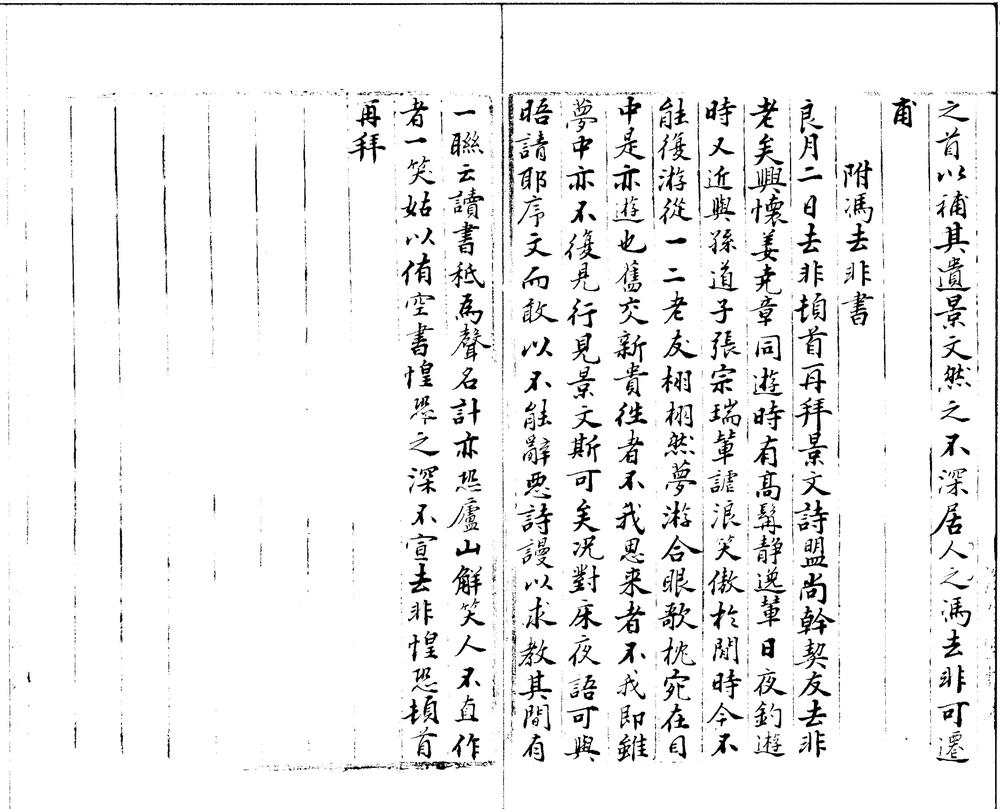 之首以補其遺景文然之不深居人之馮去非可遷
甫
附馮去非書
良月二日去非頓首再拜景文詩盟尚幹契友去非
老矣興懷姜尭章同遊時有髙髯静逸軰日夜釣遊
時又近與孫道子張宗瑞軰謔浪笑傲於閒時今不
能復游從一二老友栩栩然夢游合眼歌枕宛在目
中是亦遊也舊交新貴徃者不我思来者不我即雖
夢中亦不復見行見景文斯可矣况對床夜語可與
晤請耶序文而敢以不能辭惡詩謾以求教其間有
一聯云讀書秪為聲名計亦恐廬山解笑人不直作
者一笑姑以侑空書惶恐之深不宣去非惶恐頓首
再拜